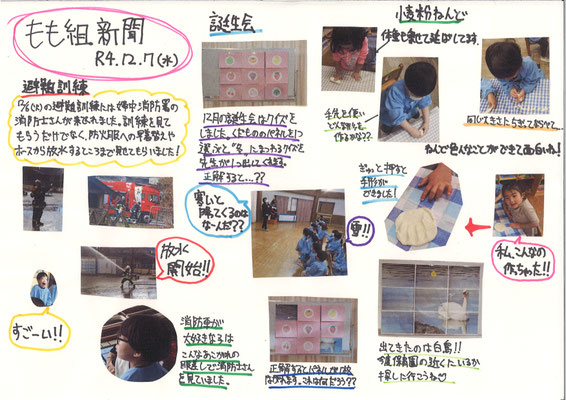 もも組新聞
R4.12.7(水)
避難訓練
12/6(火)の避難訓練には婦中消防署の
消防士さんが来られました。訓練を見て
もらうだけでなく、防火服への早着替えや
ホースから放水するところまで見てもらいました!
誕生会
12月の誕生会はクイズを
しました。くだもののパネルを1つ
選ぶと"冬"にまつわるクイズを
先生が1つ出してくれます。
正解すると…??
小麦粉ねんど
体重も乗せて延ばしてます。
手先を使い
どんな形を
作るかな??
同じ大きさにちぎってならべて…
ねんどで色んなことができて面白いね!
ぎゅっと押すと
手形が
できました!
私、こんなの
作っちゃった!!
寒いと
降ってくるのは
なーんだ??
雪!!
放水
開始!!
すごーい!!
消防車が
大好きな子は
こんなあこがれの
眼差しで消防士さん
を見ていました。
正解するとパネルが1枚
はがれます。これは何だろう??
出てきたのは白鳥!!
今度保育園の近くにいるか
探しに行こうね